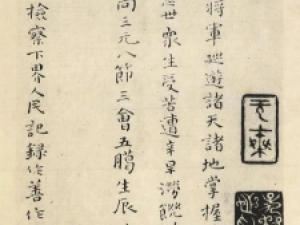 將軍巡遊諸天諸地掌握
世眾生受苦遭辛旱澇饑
三元八節三會五臘生辰
檢察下界人民記錄作善作